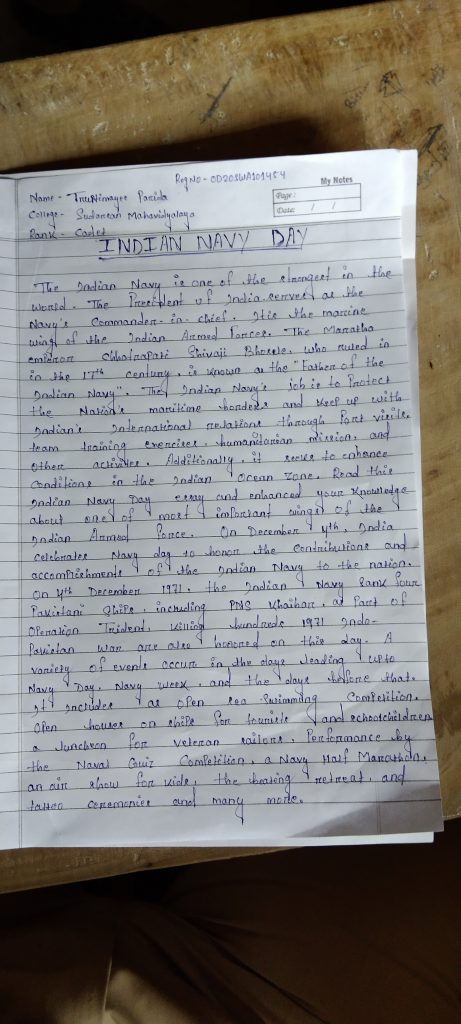 Reg No - OD20SWA101454
My Notes
Name - Truptimayee Parida
Page:
College - Sudarsan Mahavidyalaya
Date: / /
Rank - Cadet
INDIAN NAVY DAY
The Indian Navy is one of the strongest in the
World. The President of India serves as the
Navy's Commander-in-chief. It is the marine
wing of the Indian Armed Forces. The Maratha
emperor Chhatrapati Shivaji Bhosele, who ruled in
in the 17th century, is known as the "Father of the
Indian Navy". They Indian Navy's job is to Protect
the Nation's maritime borders and keep up with
Indian's International relations through Port visits,
team training exercises, humanitarian mission, and
other activities. Additionally, it seeks to enhance
Conditions in the Indian Ocean Zone. Read this
Indian Navy Day essay and enhanced your Knowledge
about one of most important wings of the
Indian Armed force. On December 4th, India
celebrates Navy day to honor the contributions and
accomplishments of the Indian Navy to the nation.
On 4th December 1971, the Indian Navy Sank four
Pakistani Ships, including PNS Khaibar, as Part of
Operation Trident, Killing hundreds 1971 Indo-
Pakistan war are also honored on this day. A
variety of events occurs in the days leading upto
Navy Day, Navy week, and the days before that.
It Includes as open sea Swimmong Competition,
Open houses on ships for tourists and schoolchildren
a luncheon for veteran sailors, Performance by
the Naval Quiz Competition, a Navy Half Marathon,
an air show for kids, the beating retreat, and
tattoo ceremonies and many more.